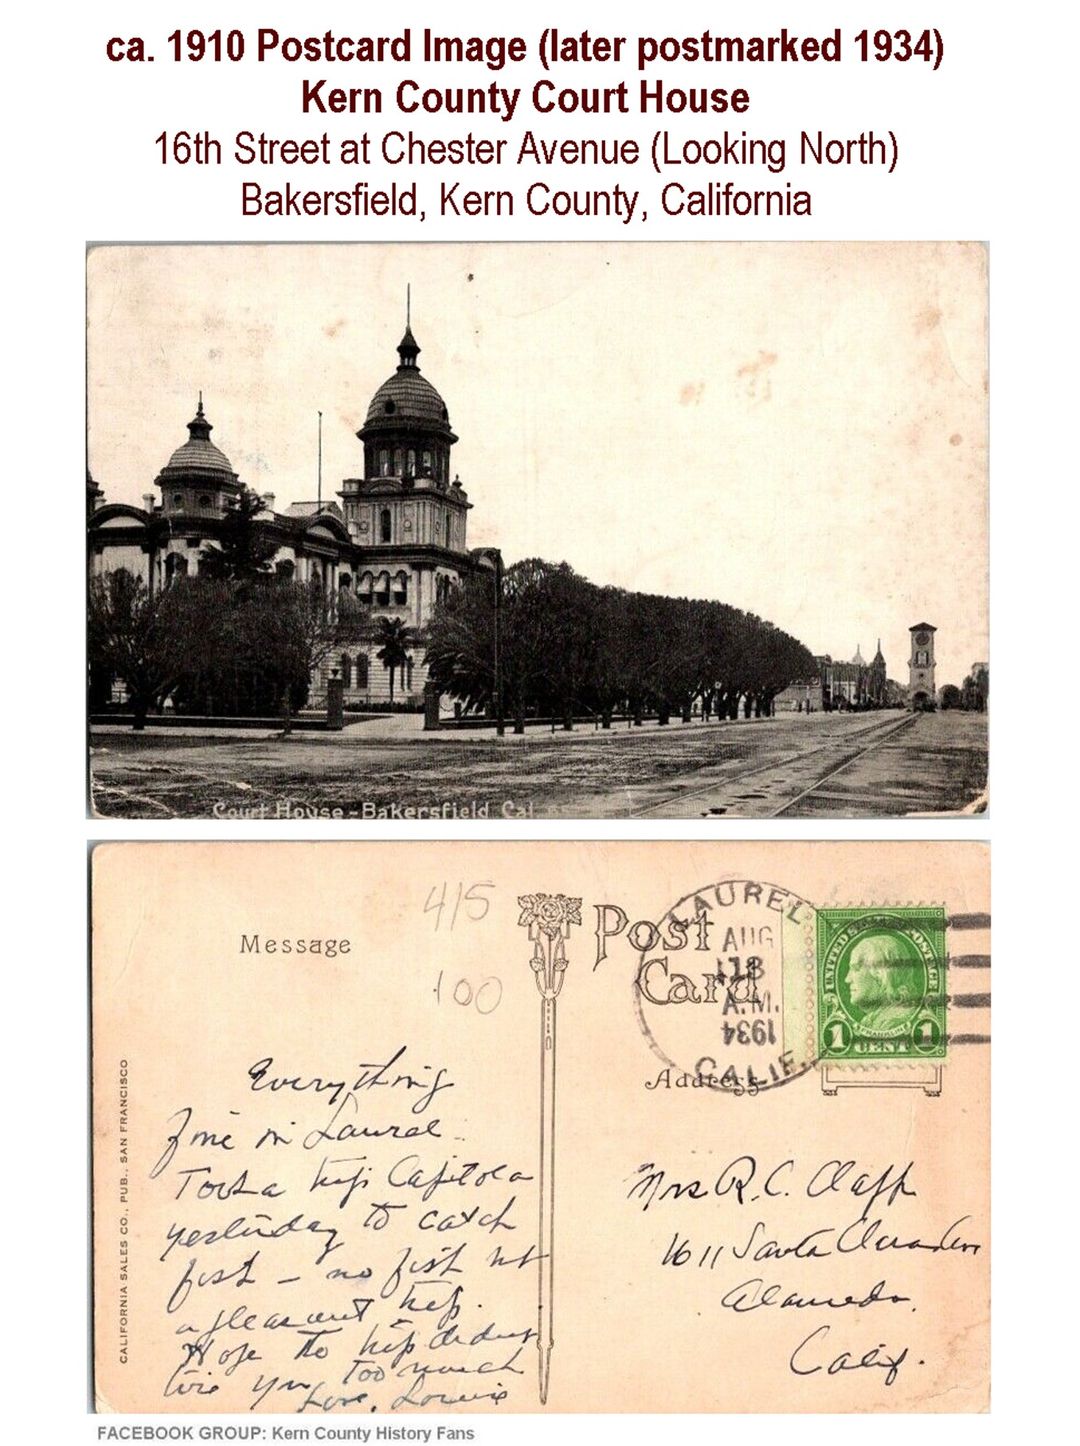 ca. 1910 Postcard Image (later postmarked 1934)
Kern County Court House
16th Street at Chester Avenue (Looking North)
Bakersfield, Kern County, California
Court House - Bakersfield Cal
Message
415
100
Post
Card
Address
LAUREL
AUG
A.M.
1934
CALIF.
UNITED STATES POSTAGE
FRANKLIN
1 CENT 1
CALIFORNIA SALES CO., PUB., SAN FRANCISCO
Everything
fine in Laurel.
Took a trip Capitola
yesterday to catch
fish – no fish but
a pleasant trip.
Hope the trip didnt
tire you too much
Love, Louise
Mrs R. C. Clapp
1611 Santa Clara Ave
Alameda,
Calif.
FACEBOOK GROUP: Kern County History Fans